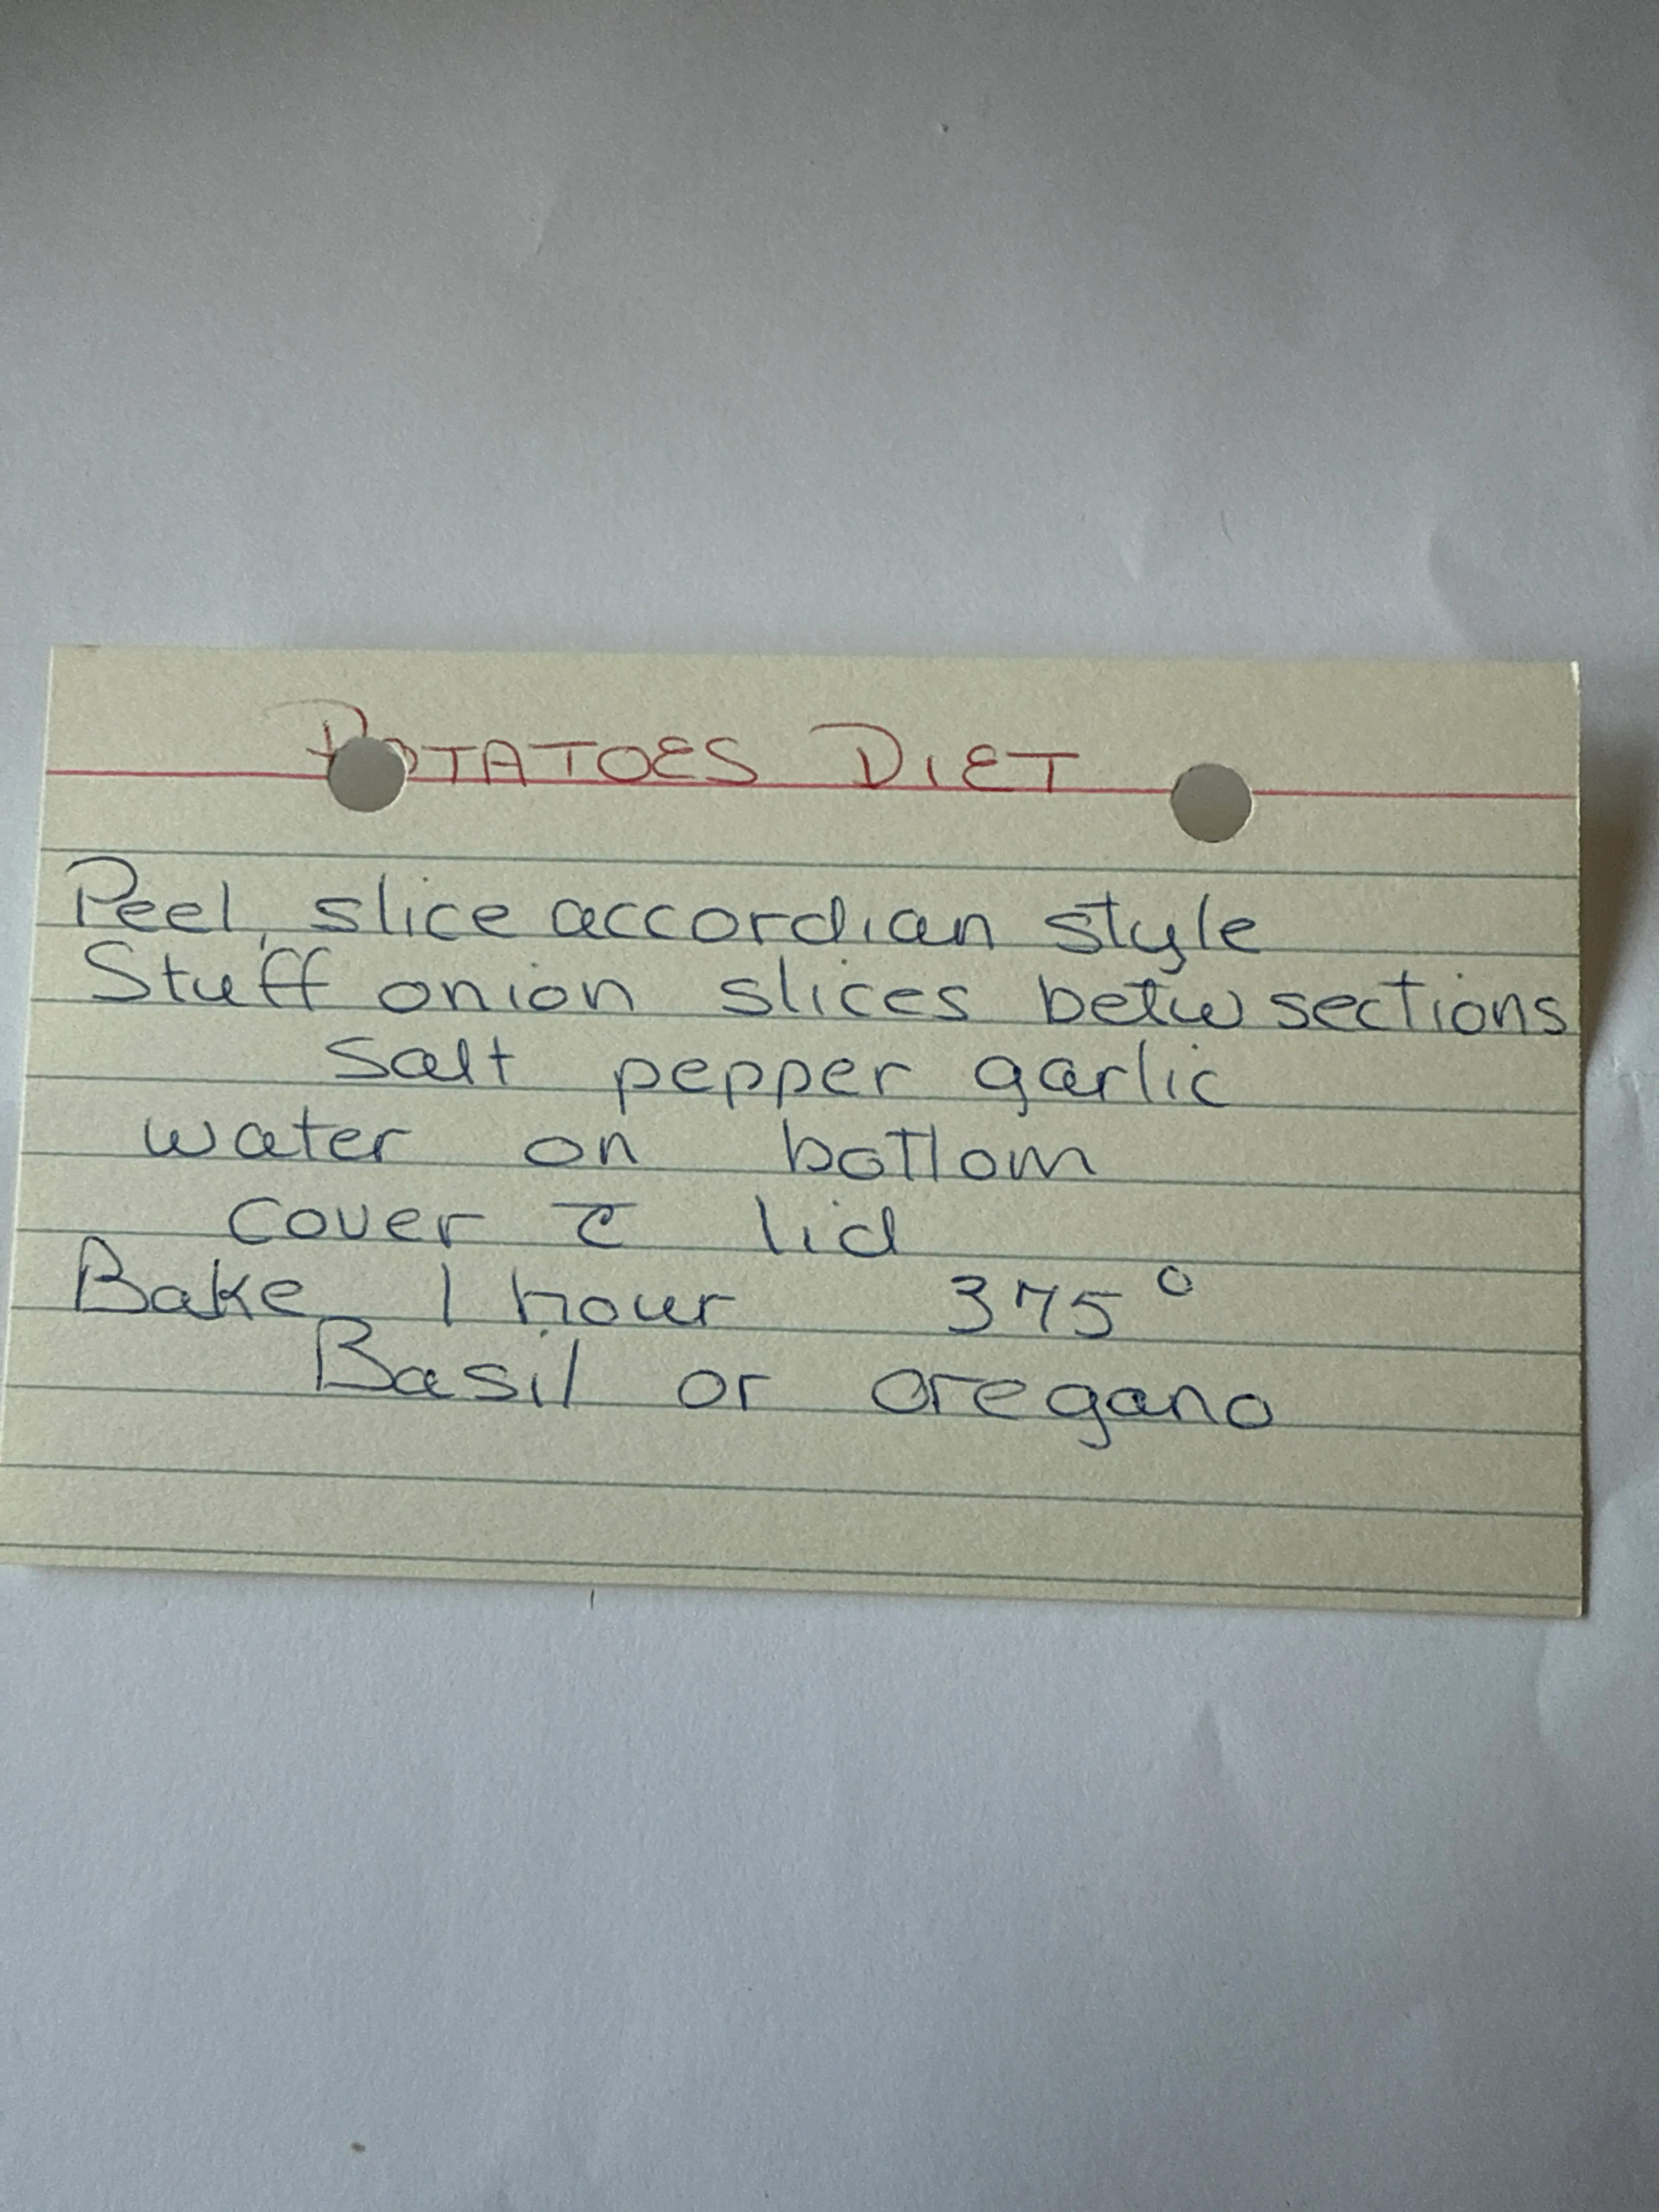 POTATOES DIET
Peel, slice accordian style
Stuff onion slices betw sections
Salt pepper garlic
water on bottom
cover c̄ lid
Bake 1 hour 375°
Basil or oregano